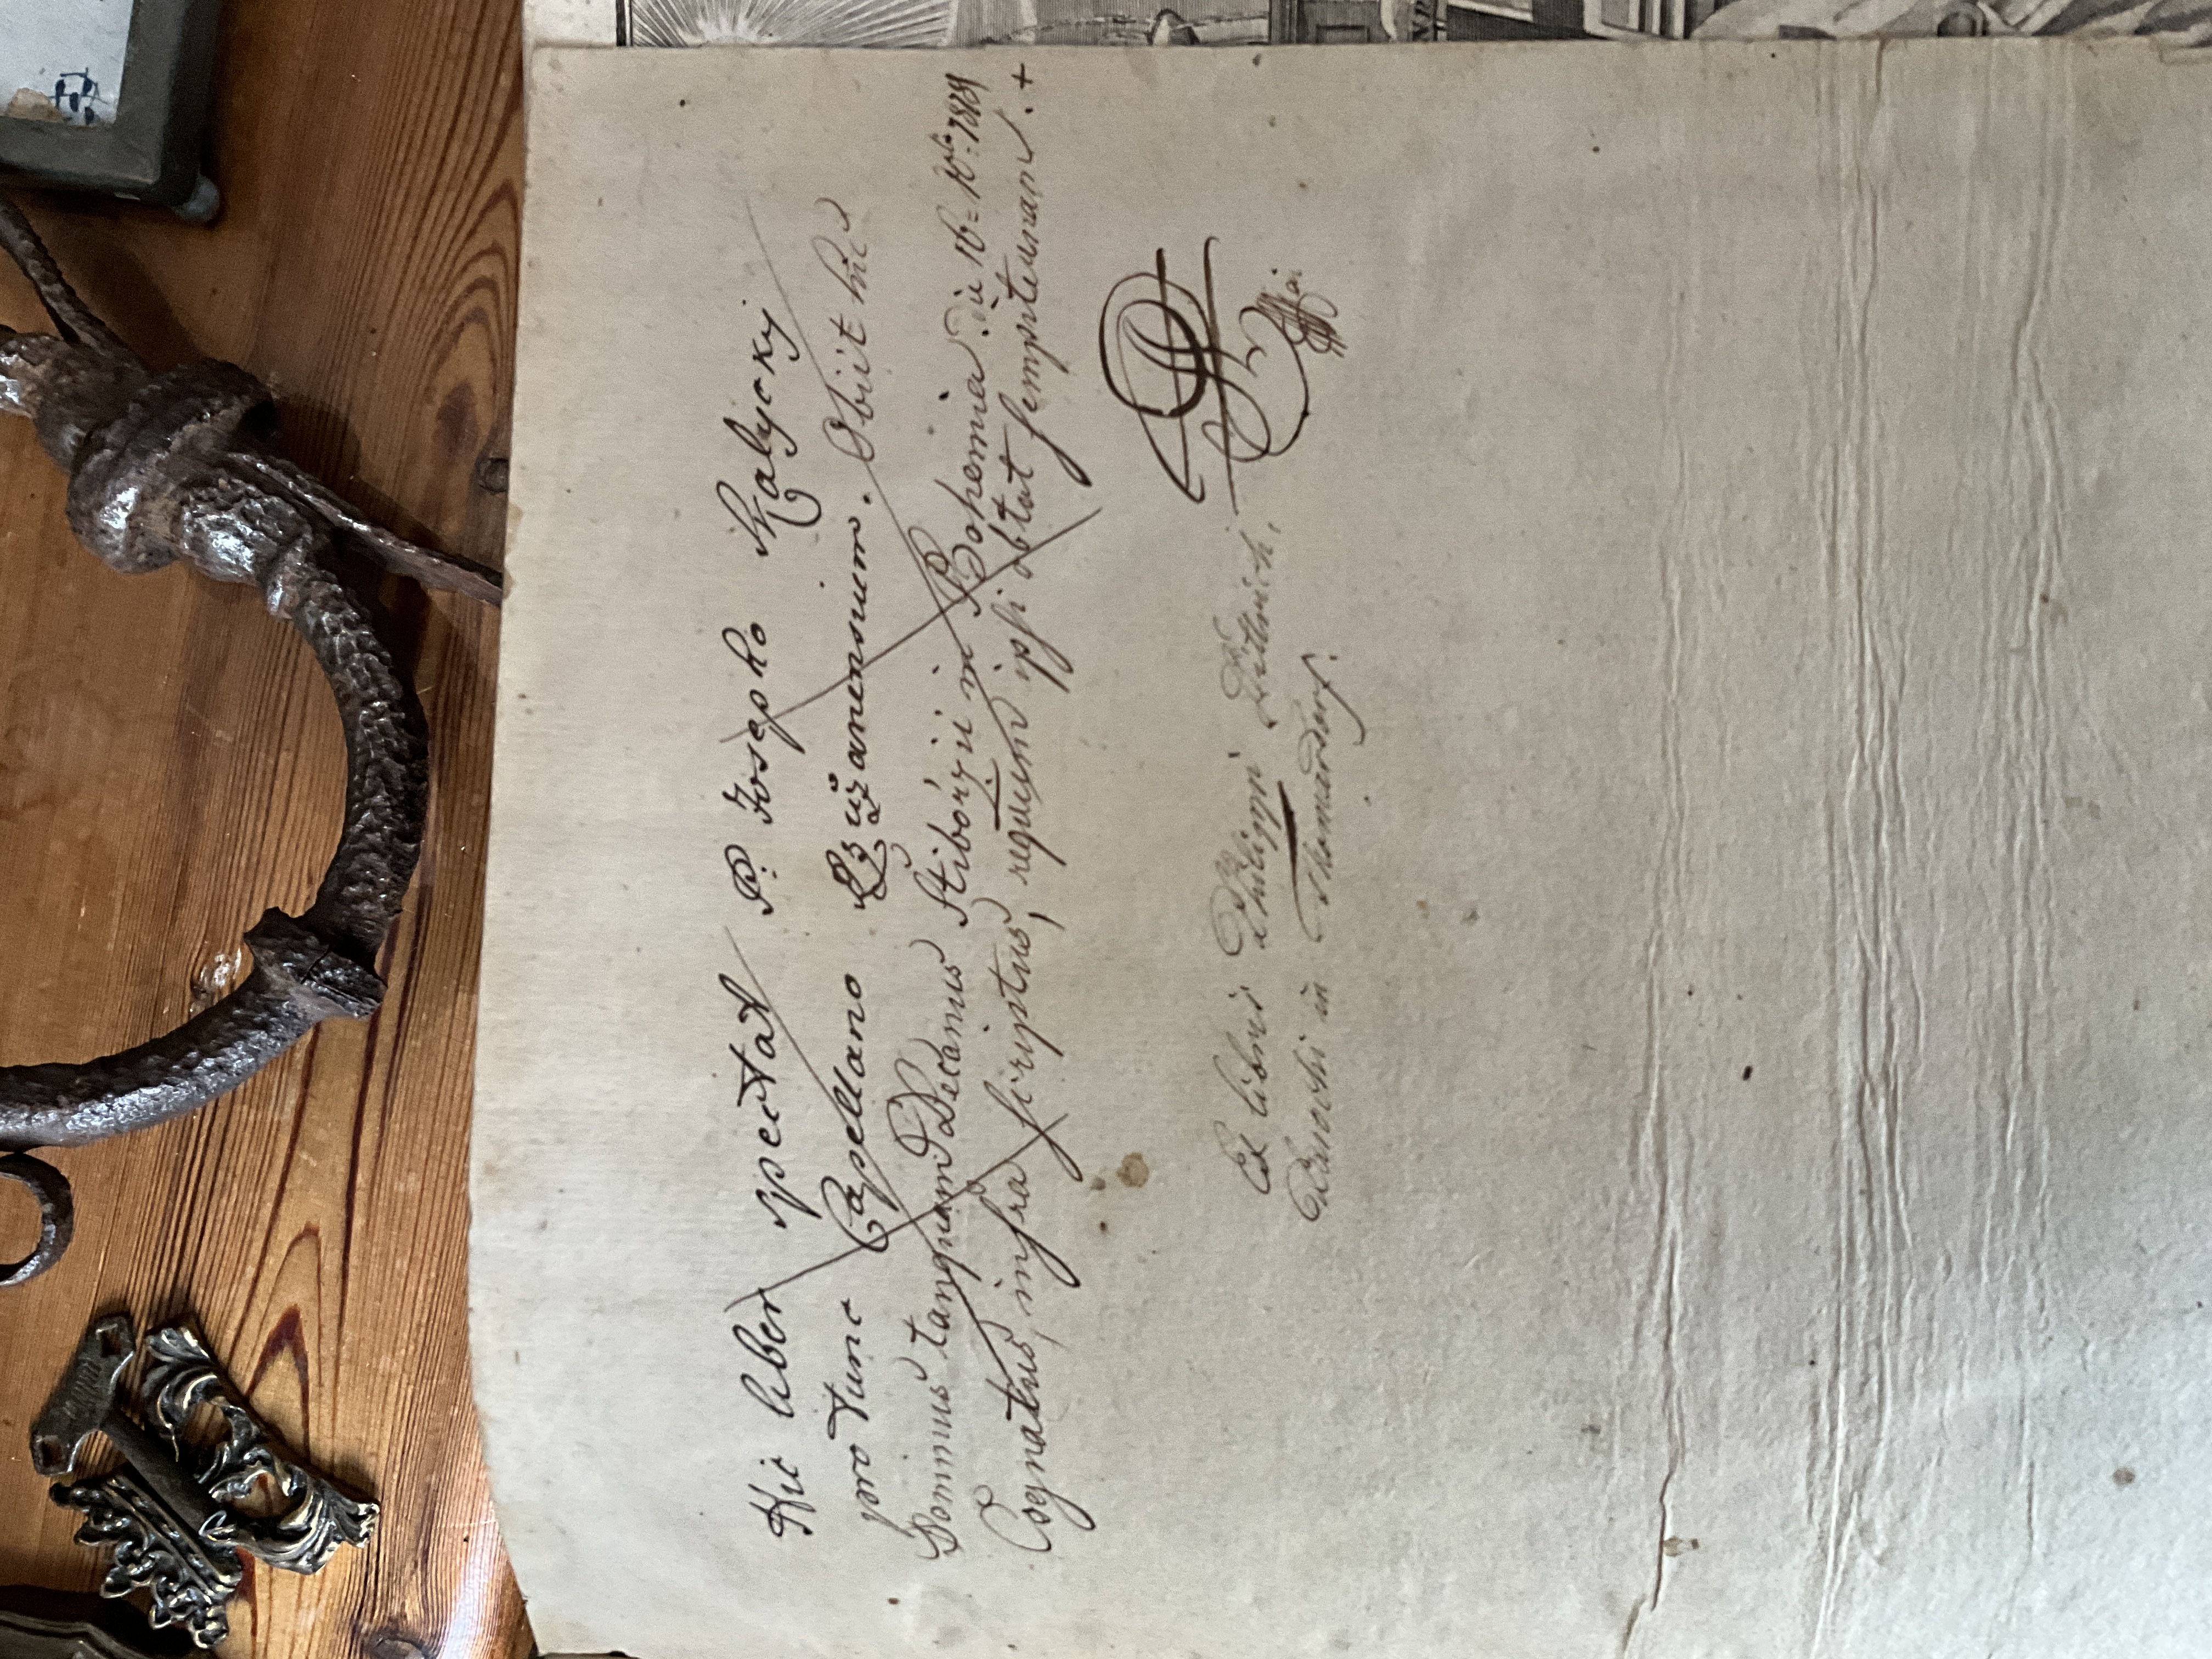 Hic liber spectat P. Josepho Skalycky
pro tunc Capellano Ežužanensium. Obiit hic
Dominus tanquam Decanus Štibořzii in Bohemia. die 16= 10bris 1819
Cognatus, infra scriptus, requiem ipsi obtat sempiternam. +
Ex libris Philippi Dittrich,
Parochi in Thomasdorf.